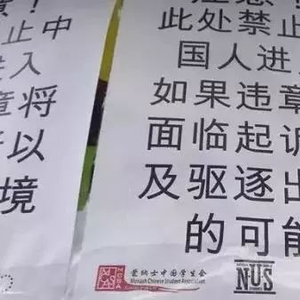 ！
止中
进入
章将
以
境
注意！
此处禁止
国人进
如果违章
面临起诉
及驱逐出
的可能
蒙纳士中国学生会
Monash Chinese Student Association
NUS